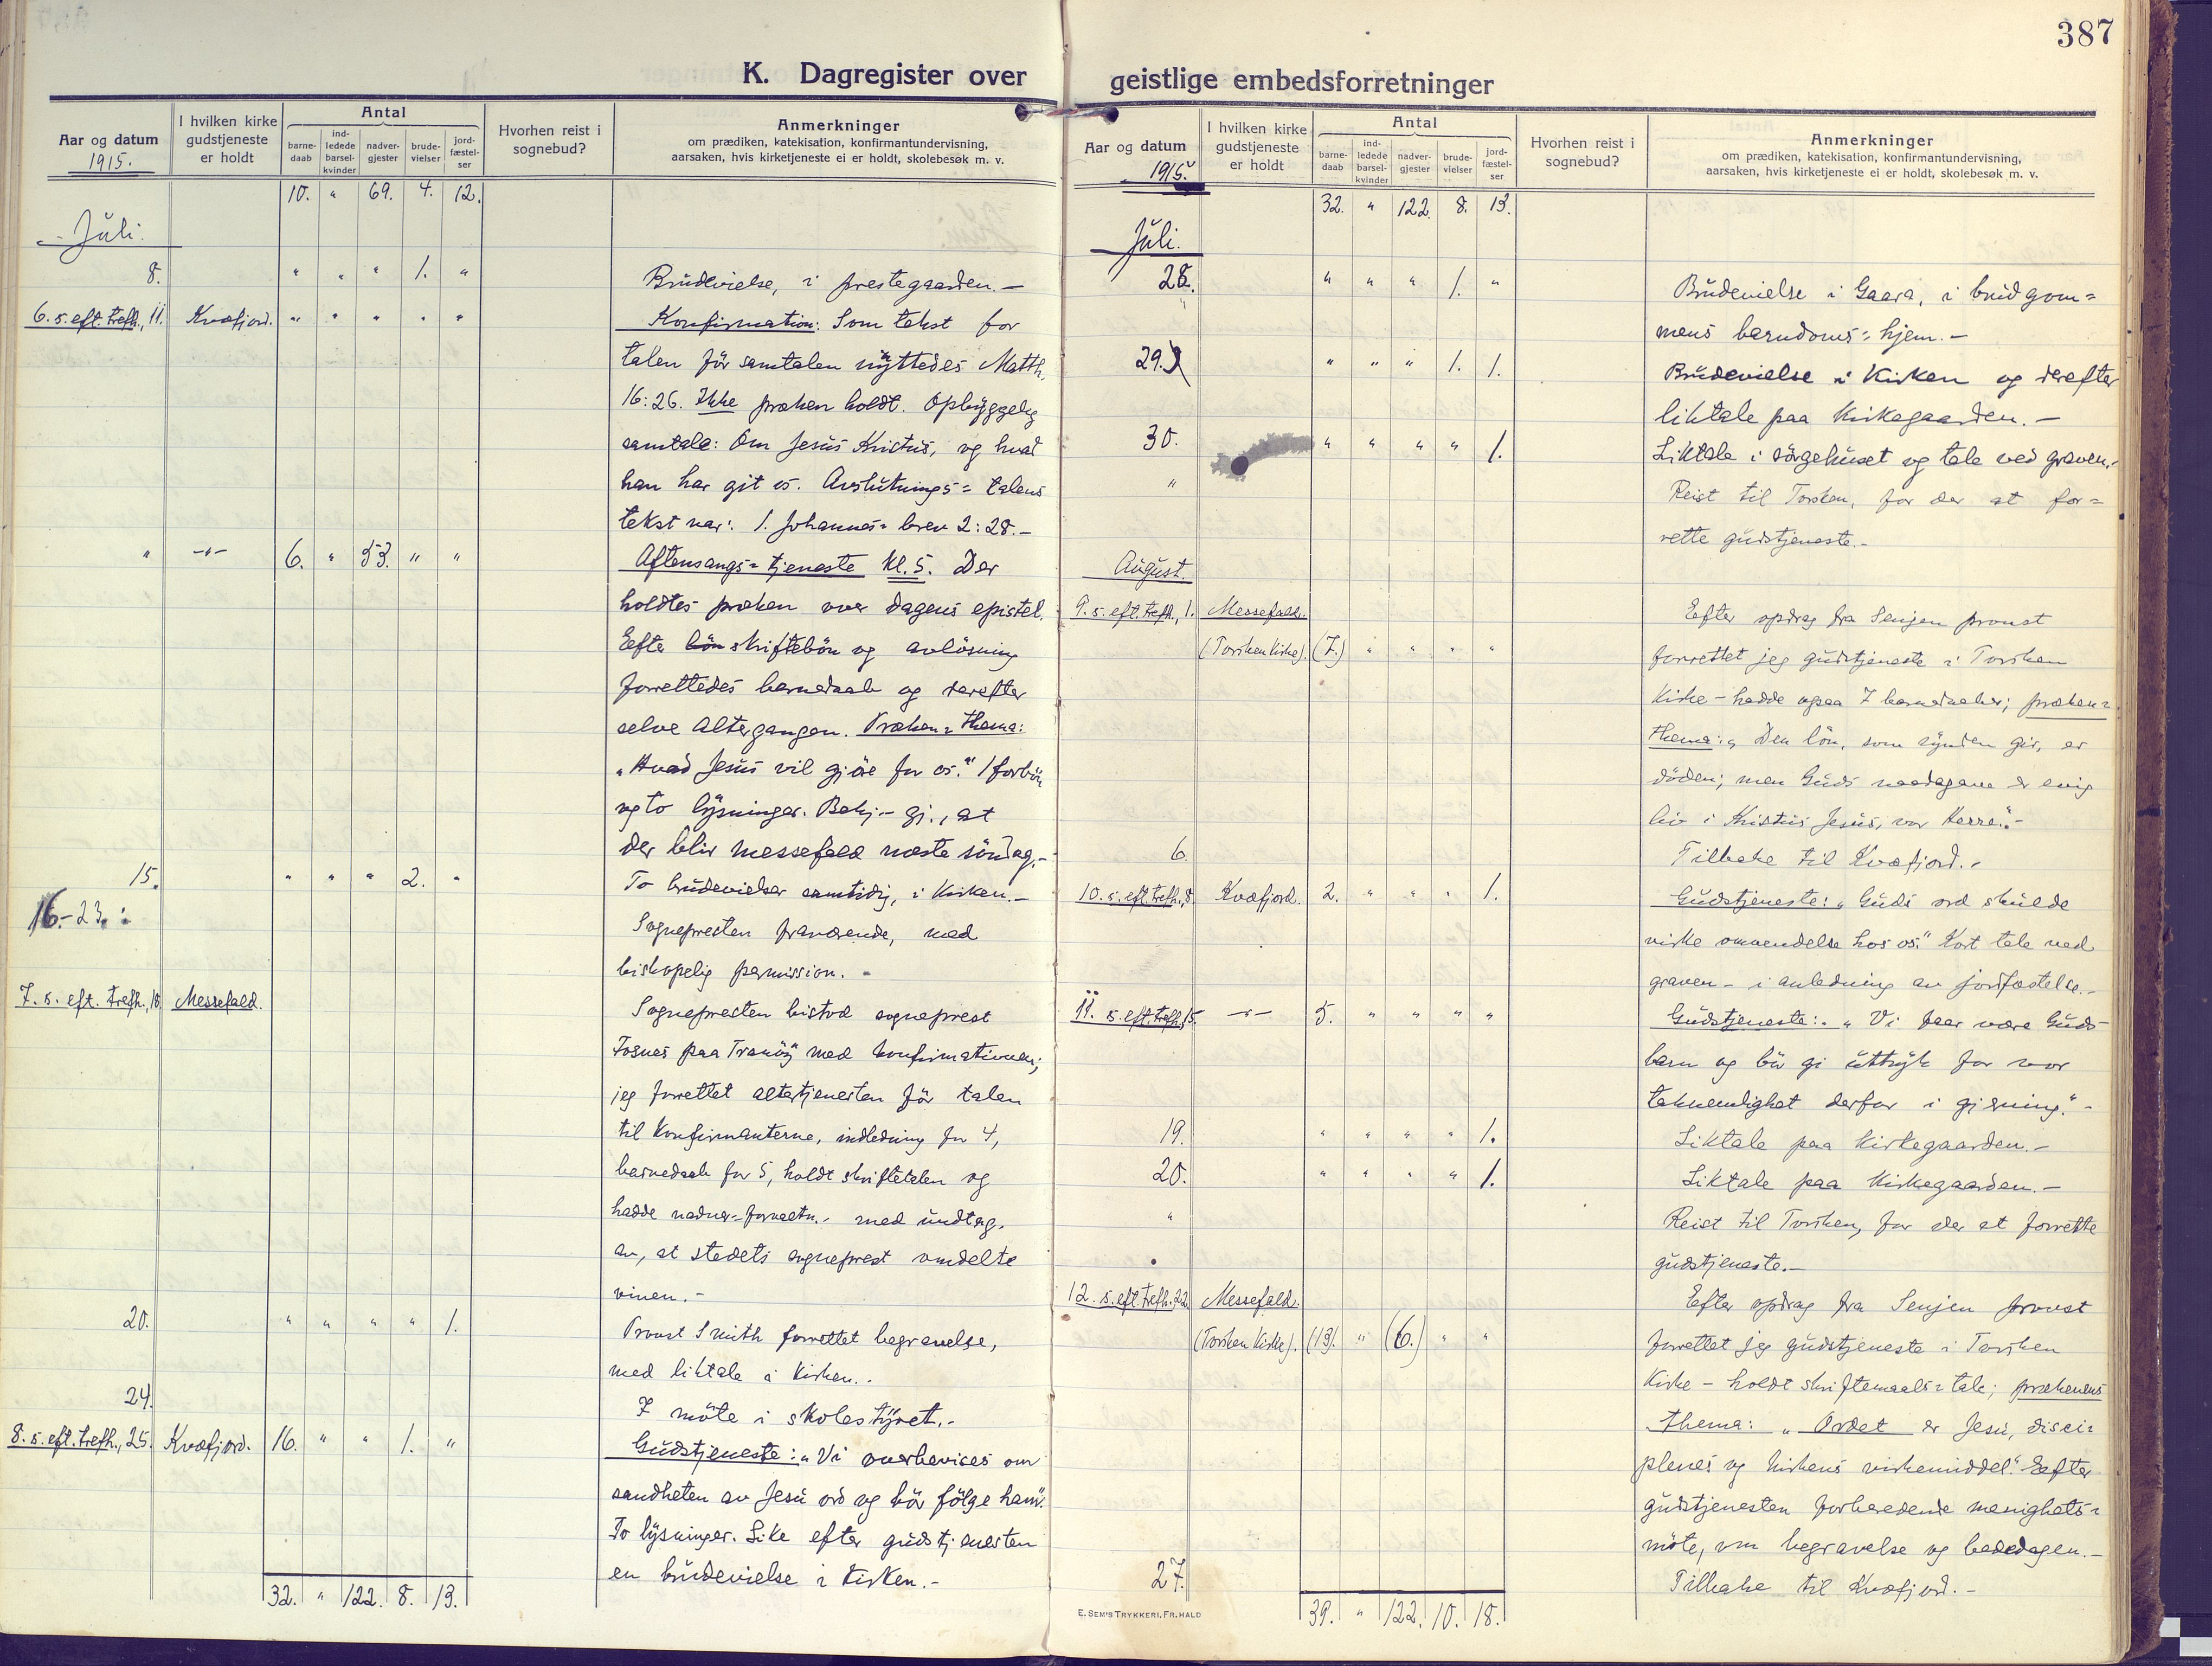 387
K. Dagregister over geistlige embedsforretninger
Aar og datum
1915.
I hvilken kirke gudstjeneste er holdt
Antal
barne-daab
ind-ledede barsel-kvinder
nadver-gjester
brude-vielser
jord-fæstel-ser
Hvorhen reist i sognebud?
Anmerkninger
om prædiken, katekisation, konfirmantundervisning,
aarsaken, hvis kirketjeneste ei er holdt, skolebesøk m. v.
10. " 69. 4. 12.
Juli.
8. " " " 1. " Brudevielse, i prestegaarden.-
6. s. eft. trefh., 11. Kvæfjord. " " " " " Konfirmation: Som tekst for
talen før samtalen nyttedes Matth.
16:26. Ikke præken holdt. Opbyggelig
samtale: Om Jesus Kristus, og hvad
han har git os. Avslutnings= talens
tekst var: 1. Johannes= brev 2:28.-
" -"- 6. " 53. " " Aftensangs= tjeneste kl. 5. Der
holdtes præken over dagens epistel.
Eefter bön skriftebön og avlösning
forrettedes barnedaab og derefter
selve altergangen. Præken= thema:
"Hvad Jesus vil gjöre for os." 1 forbön
og to lysninger. Bekj.- gj., at
der blir messefald næste söndag.-
15. " " " 2. " To brudevielser samtidig, i kirken.-
16.-23.: Sognepresten fraværende, med
biskopelig permission.-
7. s. eft. trefh., 18. Messefald. Sognepresten bistod sogneprest
Fosnes paa Tranöy med konfirmationen;
jeg forrettet altertjenesten för talen
til konfirmanterne, indledning for 4,
barnedaab for 5, holdt skriftetalen og
hadde nadver-forrectn.- med undtag.
av, at stedets sogneprest omdelte
vinen.-
20. " " " " 1. Provst Smith forrettet begravelse,
med liktale i kirken.-
24. I möte i skolestyret.-
8. s. eft. trefh., 25. Kvæfjord. 16. " " 1. " Gudstjeneste: "Vi overbevises om
sandheten av Jesu ord og bör följge ham".
To lysninger. Like efter gudstjenesten
en brudevielse i kirken.-
32. " 122. 8. 13.
Aar og datum
1915.
I hvilken kirke gudstjeneste er holdt
Antal
barne-daab
ind-ledede barsel-kvinder
nadver-gjester
brude-vielser
jord-fæstel-ser
Hvorhen reist i sognebud?
Anmerkninger
om prædiken, katekisation, konfirmantundervisning,
aarsaken, hvis kirketjeneste ei er holdt, skolebesøk m. v.
32. " 122. 8. 13.
Juli.
28. " " " 1. " Brudevielse i Gaara, i brudgom=
mens barndoms= hjem.-
29. " " " 1. 1. Brudevielse i kirken og derefter
liktale paa kirkegaarden.-
30. " " " " 1. Liktale i sörgehuset og tale ved graven.-
" Reist til Torsken, for der at for=
rette gudstjeneste.-
August.
9. s. eft. trefh., 1. Messefald. Eefter opdrag fra Senjen provst
(Torsken kirke). (7.) " " " " forrettet jeg gudstjeneste i Torsken
kirke - hadde ogsaa 7 barnedaaber; præken=
thema: "Den lön, som synden gir, er
döden; men Guds naadegave er evig
liv i Kristus Jesus, vor Herre".-
6. Tilbake til Kvæfjord.-
10. s. eft. trefh., 8. Kvæfjord. 2. " " " 1. Gudstjeneste: "Guds ord skulde
virke omvendelse hos os." Kort tale ved
graven - i anledning av jordfæstelse.-
11. s. eft. trefh., 15. -"- 5. " " " " Gudstjeneste: "Vi faar være Guds
barn og bör gi uttryk for vor
taknemlighet derfor i gjerning."-
19. " " " " 1. Liktale paa kirkegaarden.-
20. " " " " 1. Liktale paa kirkegaarden.-
" Reist til Torsken, for der at forrette
gudstjeneste.-
12. s. eft. trefh. 22. Messefald. Eefter opdrag fra Senjen provst
(Torsken kirke). (13). " (6.) " " forrettet jeg gudstjeneste i Torsken
kirke - holdt skriftemaals= tale; prækenens
thema: "Ordet er Jesu, disci=
plenes og kirkens virkemiddel." Eefter
gudstjenesten forberedende menighets=
möte, om begravelse og bededagen.-
27. Tilbake til Kvæfjord.-
39. " 122. 10. 18.
E. SEM'S TRYKKERI, FR.HALD